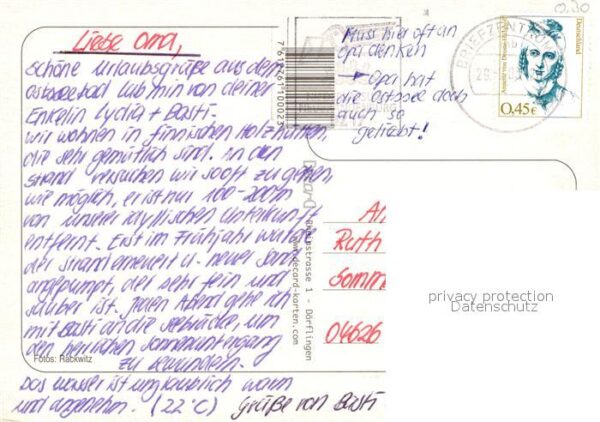 Liebe Oma,
schöne Urlaubsgrüße aus dem
Ostseebad Lubmin von deiner
Enkelin Lydia + Basti.
Wir wohnen in finnischen Holzhütten,
die sehr gemütlich sind. An den
Strand versuchen wir so oft zu gehen,
wie möglich, er ist nur 100-200m
von unserer idyllischen Unterkunft
entfernt. Erst im Frühjahr wurde
der Strand erneuert u. neuer Sand
angepumpt, der sehr fein und
sauber ist. Jeden Abend gehe ich
mit Basti an die Seebrücke, um
den herrlichen Sonnenuntergang
zu bewundern.
Das Wasser ist unglaublich warm
und angenehm. (22°C) Grüße von Basti
Fotos: Rackwitz
Muss hier oft an
Opa denken
Opa hat
die Ostsee doch
auch so
geliebt!
7 616261 100023
strasse 1 - Dörflingen
www.decard-karten.com
0.30
BRIEFZENTRUM
Deutschland
Annette von Droste-Hülshoff
0,45€
An
Ruth
Somm
04626
privacy protection
Datenschutz